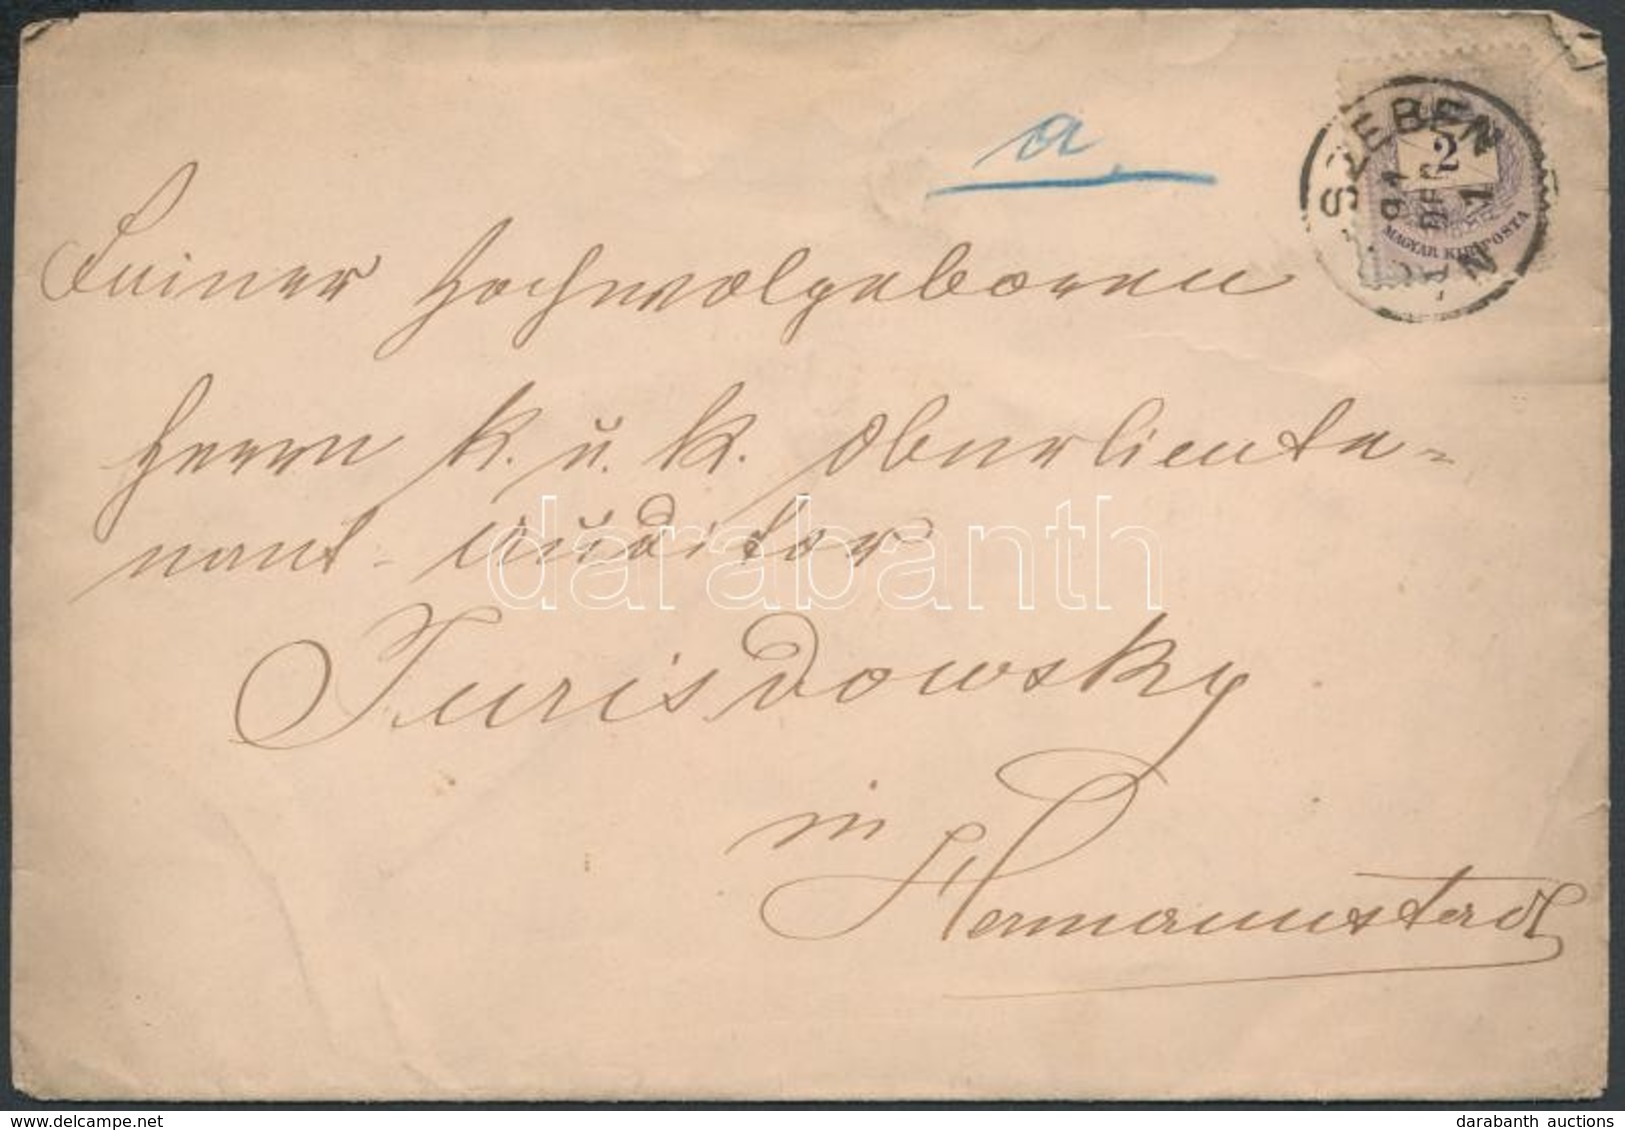 a
SZEBEN
91
DEC
1
N
2
MAGYAR KIR. POSTA
Seiner Hochwolgeboren
Herrn k. u. k. Oberlieute-
nant-Auditor
darabanth
Jurisdowsky
in
Hermannstadt
www.delcampe.net
darabanth auctions